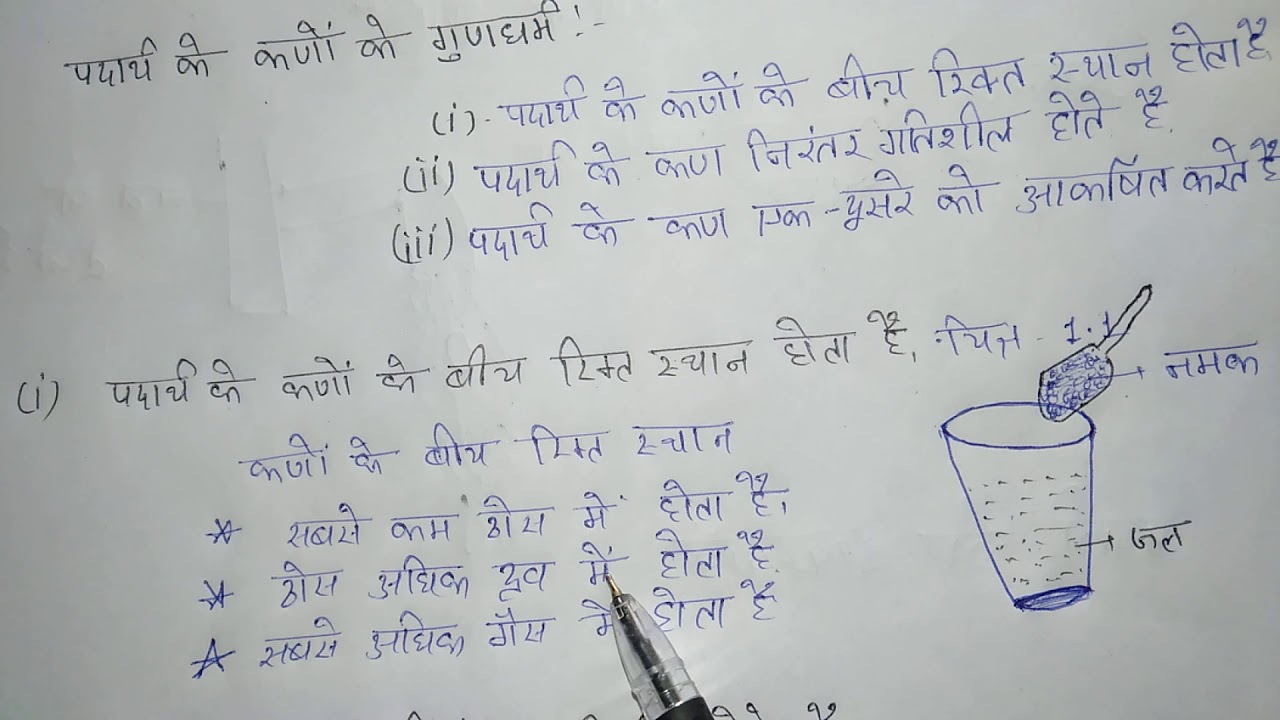 पदार्थ के कणों के गुणधर्म :-
(i) पदार्थ के कणों के बीच रिक्त स्थान होता है
(ii) पदार्थ के कण निरंतर गतिशील होते है
(iii) पदार्थ के कण एक-दूसरे को आकर्षित करते है
(i) पदार्थ के कणों के बीच रिक्त स्थान होता है, चित्र - 1.1
नमक
कणों के बीच रिक्त स्थान
* सबसे कम ठोस में होता है।
जल
* ठोस अधिक द्रव में होता है
* सबसे अधिक गैस में होता है